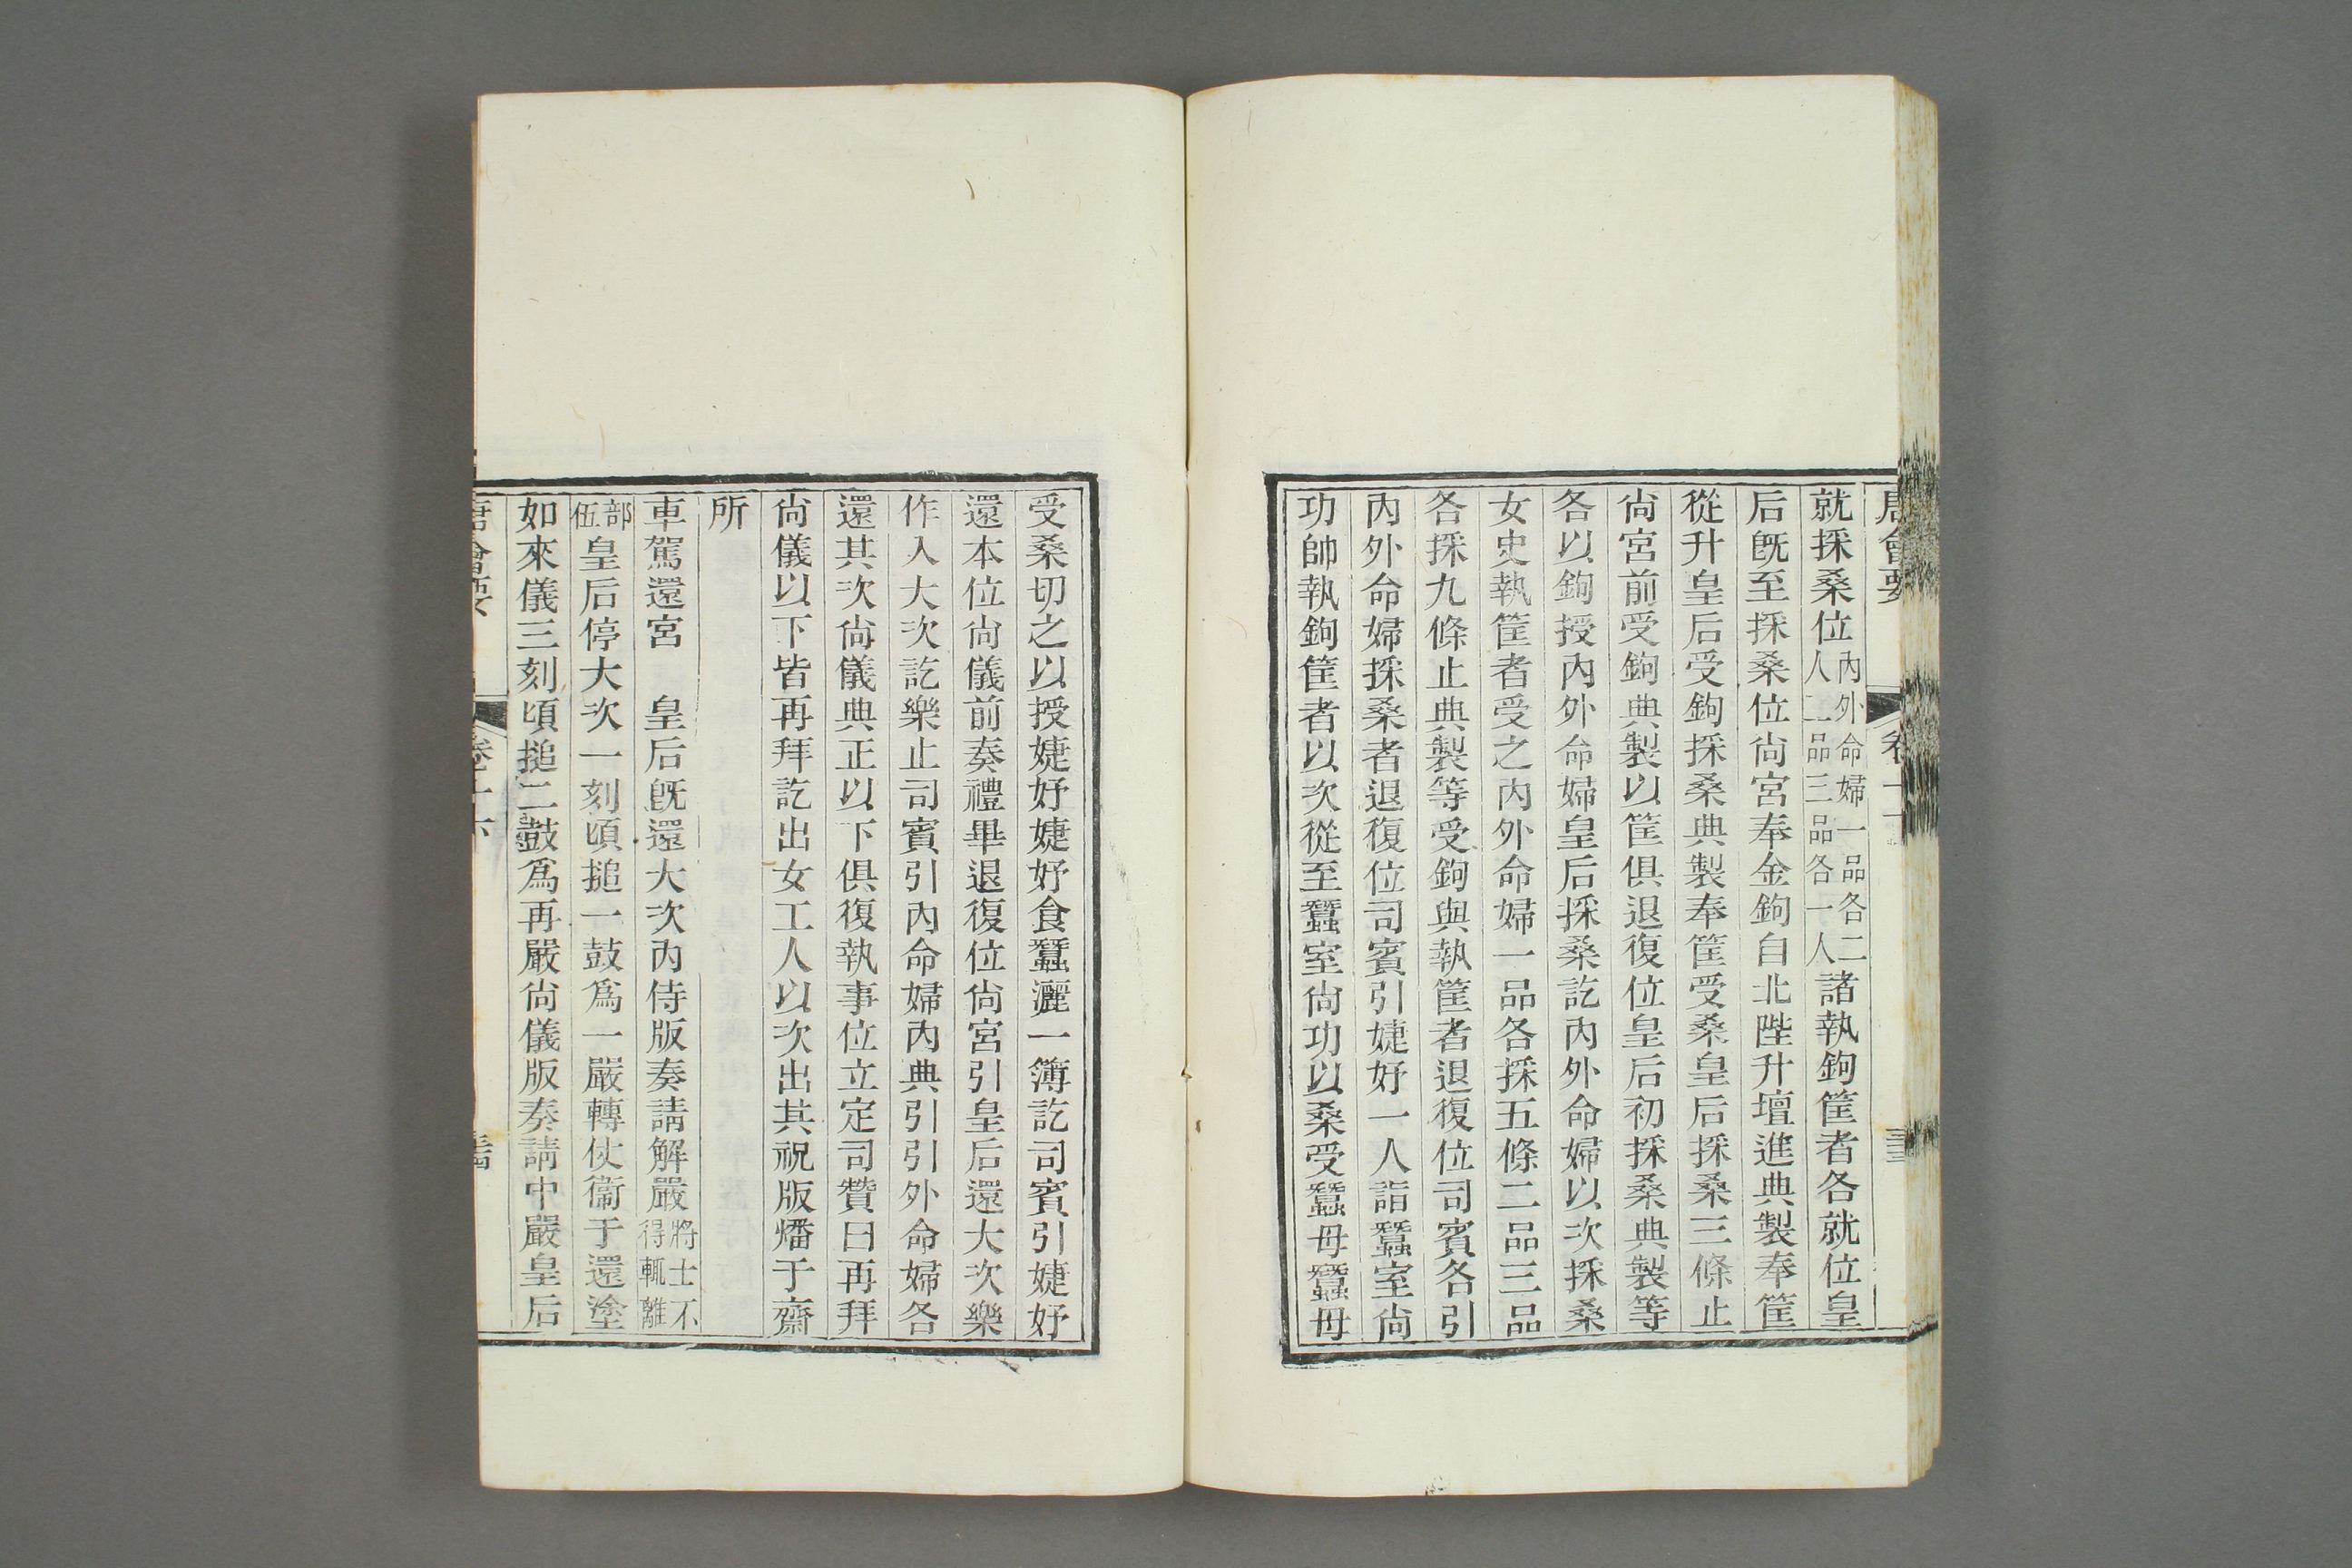 唐會要
就採桑位內外命婦一品各二人二品三品各一人諸執鉤筐者各就位皇
后旣至採桑位尙宮奉金鉤自北陛升壇進典製奉筐
從升皇后受鉤採桑典製奉筐受桑皇后採桑三條止
尙宮前受鉤典製以筐俱退復位皇后初採桑典製等
各以鉤授內外命婦皇后採桑訖內外命婦以次採桑
女史執筐者受之內外命婦一品各採五條二品三品
各採九條止典製等受鉤與執筐者退復位司賓各引
內外命婦採桑者退復位司賓引婕妤一人詣蠶室尙
功帥執鉤筐者以次從至蠶室尙功以桑受蠶母蠶母
受桑切之以授婕妤婕妤食蠶灑一簿訖司賓引婕妤
還本位尙儀前奏禮畢退復位尙宮引皇后還大次樂
作入大次訖樂止司賓引內命婦內典引引外命婦各
還其次尙儀典正以下俱復執事位立定司贊曰再拜
尙儀以下皆再拜訖出女工人以次出其祝版燔于齋
所
車駕還宮　皇后旣還大次內侍版奏請解嚴將士不得輒離
部伍皇后停大次一刻頃搥一鼓爲一嚴轉仗衞于還塗
如來儀三刻頃搥二鼓爲再嚴尙儀版奏請中嚴皇后
唐會要